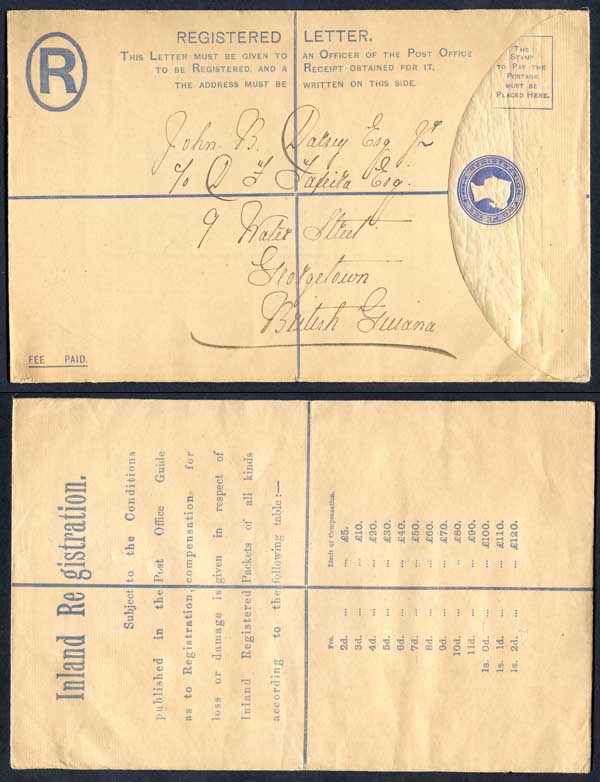 REGISTERED LETTER.
THIS LETTER MUST BE GIVEN TO AN OFFICER OF THE POST OFFICE
TO BE REGISTERED, AND A RECEIPT OBTAINED FOR IT.
THE ADDRESS MUST BE WRITTEN ON THIS SIDE.
R
THE
STAMP
TO PAY THE
POSTAGE
MUST BE
PLACED HERE.
John B. Darsey Esq Jr
c/o D F Esq.
9 Water Street
Georgetown
British Guiana
FEE PAID.
Inland Registration.
Subject to the Conditions
published in the Post Office Guide
as to Registration, compensation for
loss or damage is given in respect of
Inland Registered Packets of all kinds
according to the following table:—
Fee. Limit of Compensation.
2d. ... ... £5.
3d. ... ... £10.
4d. ... ... £20.
5d. ... ... £30.
6d. ... ... £40.
7d. ... ... £50.
8d. ... ... £60.
9d. ... ... £70.
10d. ... ... £80.
11d. ... ... £90.
1s. 0d. ... ... £100.
1s. 1d. ... ... £110.
1s. 2d. ... ... £120.